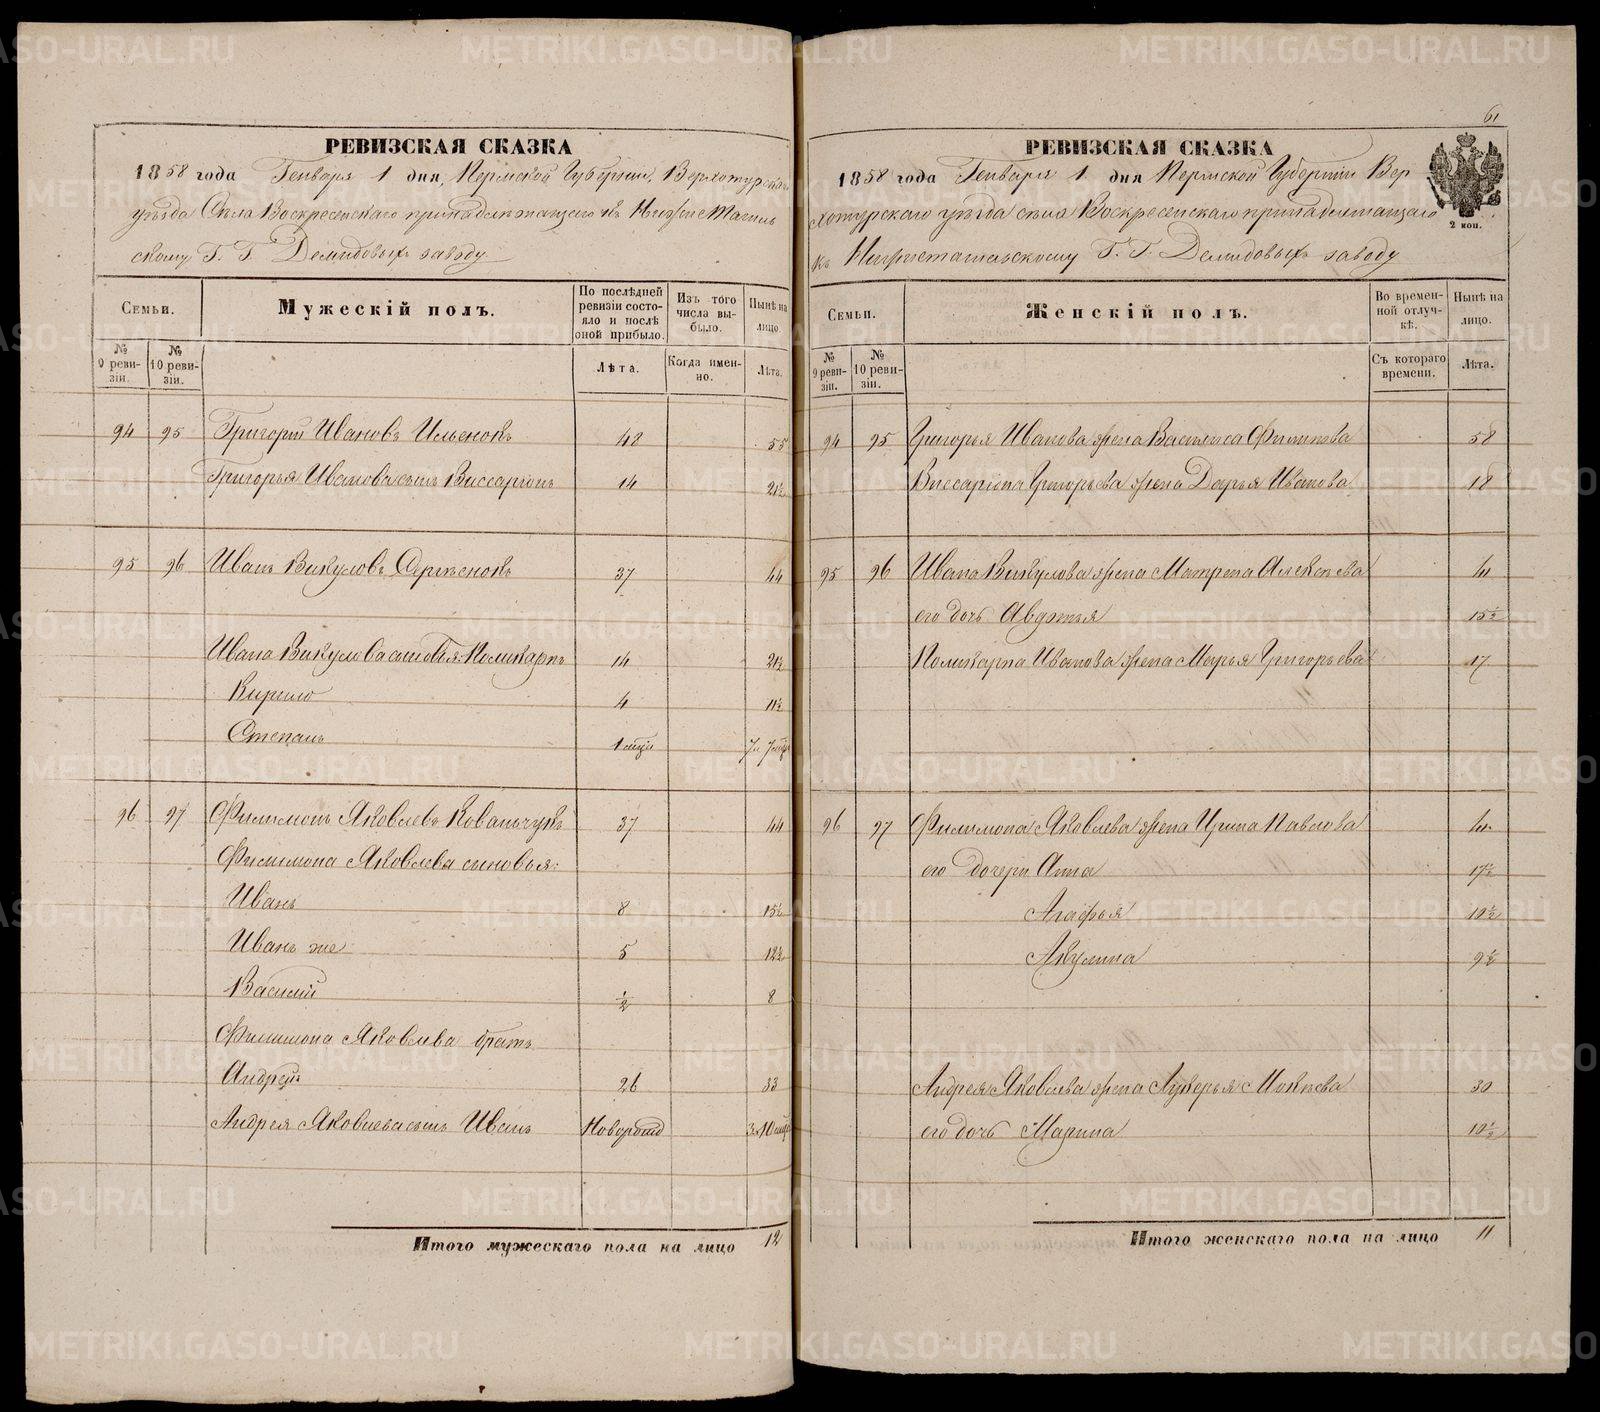 РЕВИЗСКАЯ СКАЗКА
1858 года Генваря 1 дня, Пермской Губерніи, Верхотурскаго
уѣзда Села Воскресенскаго принадлежащаго къ Нижне Тагиль
скому Г. Г. Демидовыхъ заводу
Семьи.
Мужескій полъ.
По послѣдней ревизіи состояло и послѣ оной прибыло.
Изъ того числа выбыло.
Нынѣ на лицо.
№ 9 ревизіи.
№ 10 ревизіи.
Лѣта.
Когда именно.
Лѣта.
94 95 Григорій Ивановъ Ильенокъ 48 55
Григорья Иванова сынъ Виссаріонъ 14 21½
95 96 Иванъ Викуловъ Сергѣенокъ 37 44
Ивана Викулова сыновья: Поликарпъ 14 21½
Кирило 4 11½
Степанъ 1 мѣся 7 и 7 мѣс
96 97 Филимонъ Яковлевъ Кованьчукъ 37 44
Филимона Яковлева сыновья:
Иванъ 8 15½
Иванъ же 5 12½
Василій ½ 8
Филимона Яковлева братъ
Андрей 26 33
Андрея Яковлева сынъ Иванъ Новорожд 3 и 10 мѣс
Итого мужескаго пола на лицо 12
61
РЕВИЗСКАЯ СКАЗКА
1858 года Генваря 1 дня Пермской Губерніи Вер
хотурскаго уѣзда села Воскресенскаго принадлежащаго
къ Нижнетагильскому Г. Г. Демидовыхъ заводу
2 коп.
Семьи.
Женскій полъ.
Во временной отлучкѣ.
Нынѣ на лицо.
№ 9 ревизіи.
№ 10 ревизіи.
Съ котораго времени.
Лѣта.
94 95 Григорья Иванова жена Василиса Филипова 58
Виссаріона Григорьева жена Дарья Иванова 18
95 96 Ивана Викулова жена Матрена Алексѣева 41
его дочь Авдотья 15½
Поликарпа Иванова жена Марья Григорьева 17
96 97 Филимона Яковлева жена Ирина Павлова 41
его дочери Анна 17½
Агафья 10½
Акулина 9½
Андрея Яковлева жена Лукерья Мокѣева 30
его дочь Марина 10½
Итого женскаго пола на лицо 11
METRIKI.GASO-URAL.RU